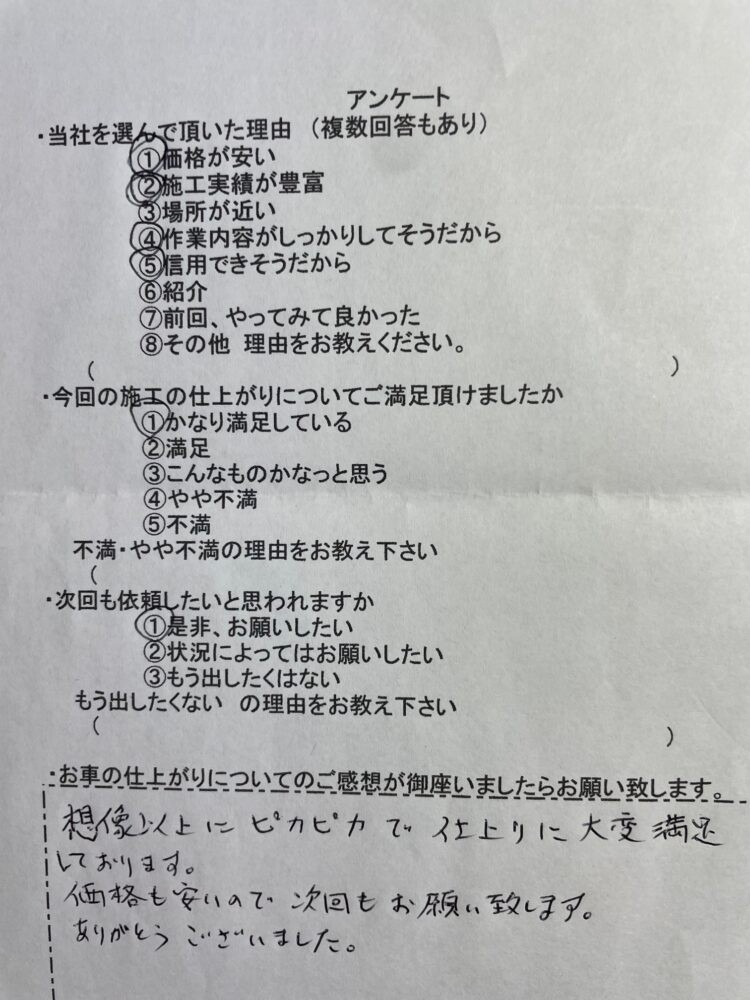 アンケート
・当社を選んで頂いた理由 （複数回答もあり）
①価格が安い
②施工実績が豊富
③場所が近い
④作業内容がしっかりしてそうだから
⑤信用できそうだから
⑥紹介
⑦前回、やってみて良かった
⑧その他 理由をお教えください。
( )
・今回の施工の仕上がりについてご満足頂けましたか
①かなり満足している
②満足
③こんなものかなっと思う
④やや不満
⑤不満
不満・やや不満の理由をお教え下さい
(
・次回も依頼したいと思われますか
①是非、お願いしたい
②状況によってはお願いしたい
③もう出したくはない
もう出したくない の理由をお教え下さい
( )
・お車の仕上がりについてのご感想が御座いましたらお願い致します。
想像以上にピカピカで仕上りに大変満足
しております。
価格も安いので次回もお願い致します。
ありがとうございました。